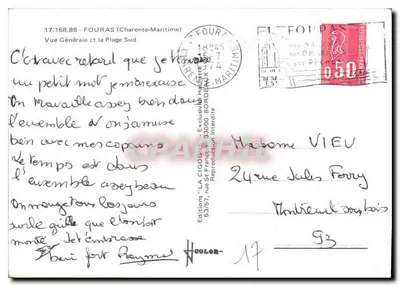 17.168.88 - FOURAS (Charente-Maritime)
Vue Générale et la Plage Sud
C'est avec retard que je t'envoie
un petit mot je m'en excuse
On travaille assez bien dans
l'ensemble et on s'amuse
bien avec mes copains
Le temps est dans
l'ensemble assez beau
On mange tous les jours
sur le que l'on soit
monté Je t'embrasse
bien fort Raymond
Editions "LA CIGOGNE"
53/57, rue St-François 33000 BORDEAUX
Reproduction interdite
COLOR
17 FOURAS
18H45
CHARENTE-MARITIME
FOURAS
0,50
Madame VIEU
24 rue Jules Ferry
Montreuil sous bois
93
17